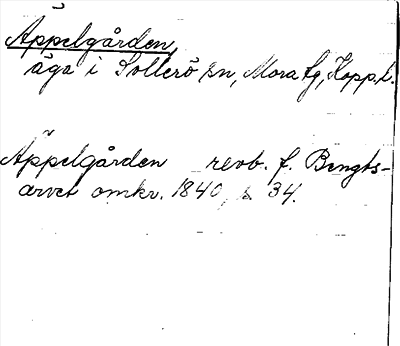 Äppelgården,
äga i Sollerö sn, Mora tg, Kopp.l.
Äppelgården revb. f. Bengts-
arvet omkr. 1840, s. 34.